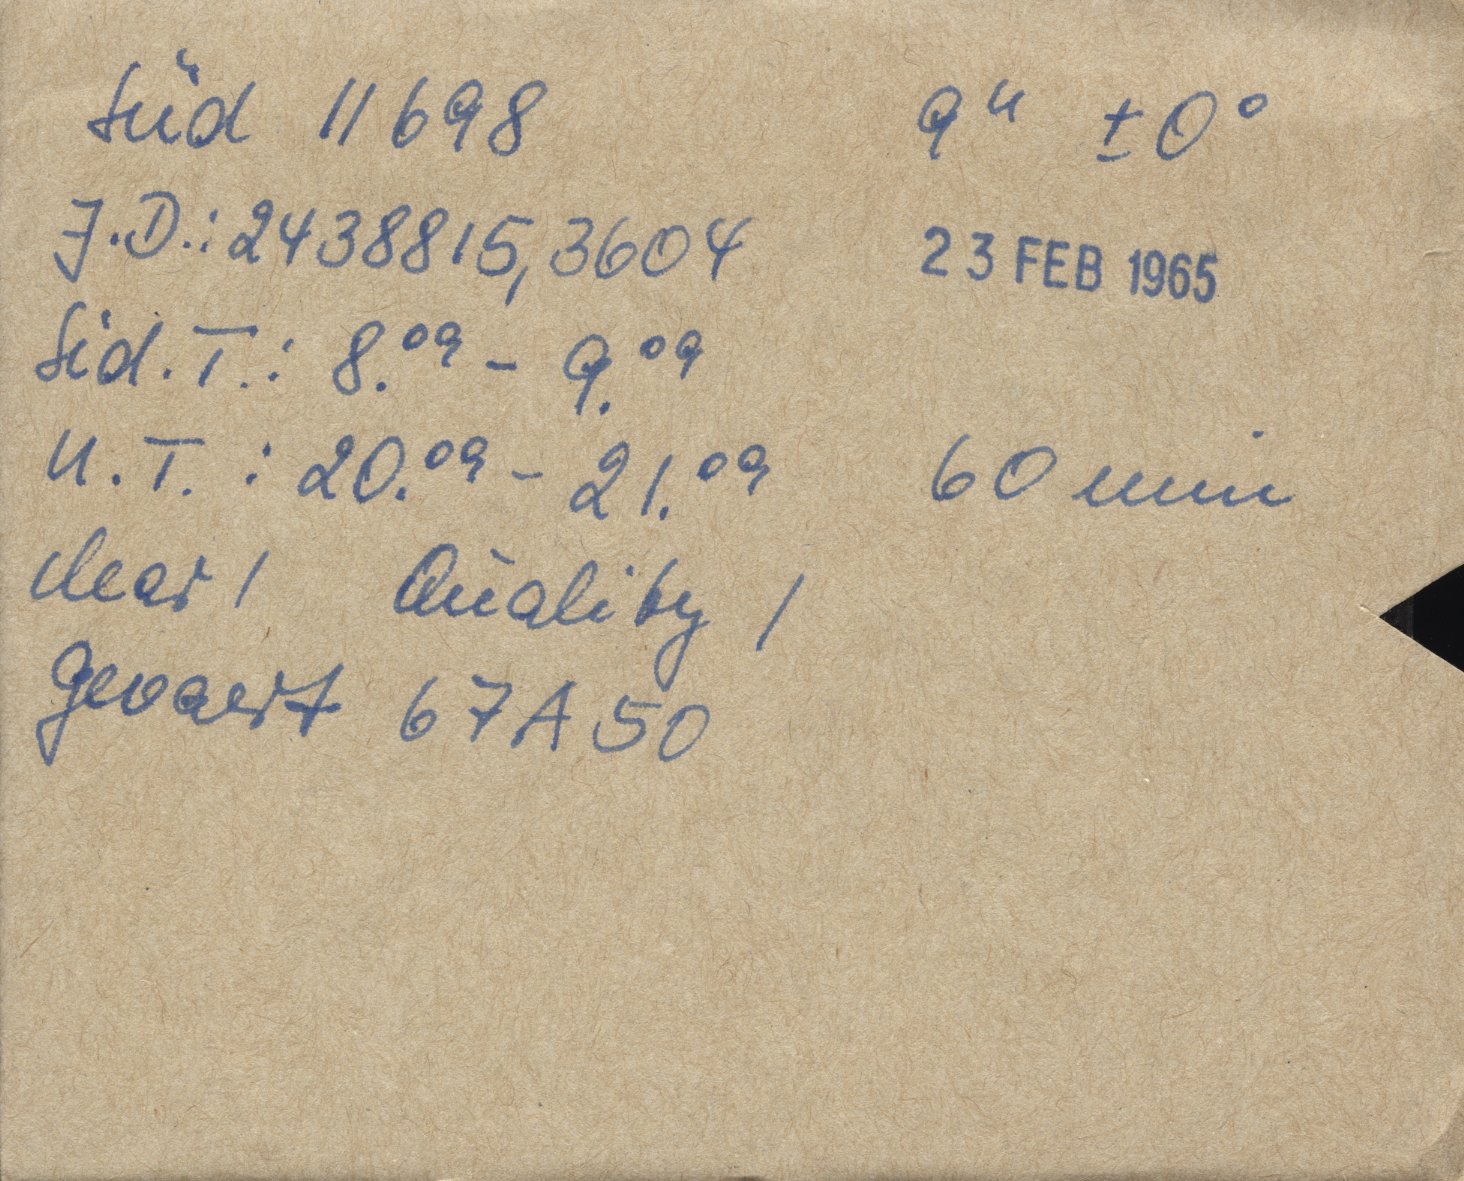 Süd 11698 9ʰ ±0°
J.D.: 2438815,3604 23 FEB 1965
Sid. T.: 8.⁰⁹ - 9.⁰⁹
U.T. : 20.⁰⁹ - 21.⁰⁹ 60 min
clear 1 Quality 1
Gevaert 67A50